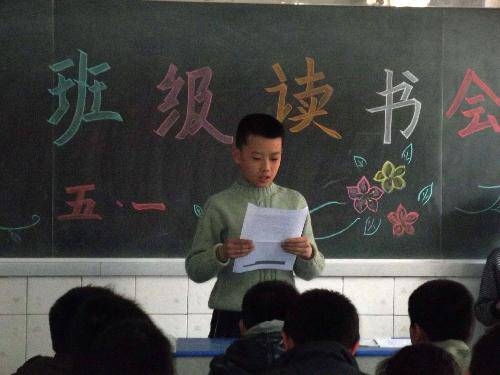 班级读书会
五·一